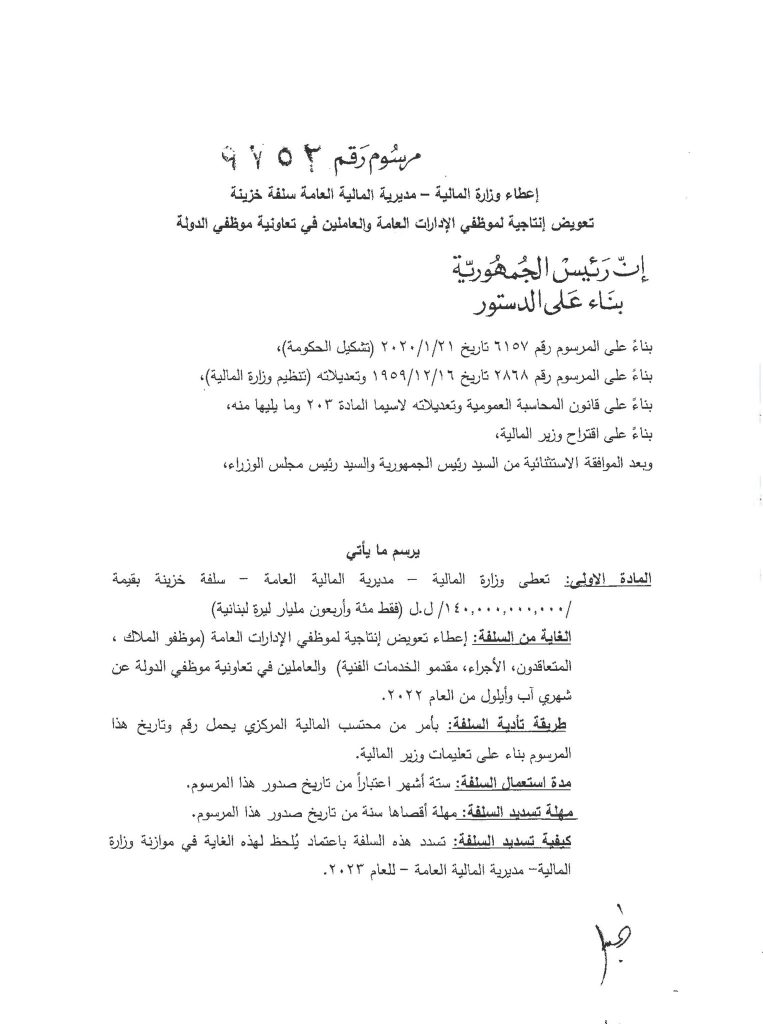 مرسوم رقم ٩٧٥٢
إعطاء وزارة المالية – مديرية المالية العامة سلفة خزينة
تعويض إنتاجية لموظفي الإدارات العامة والعاملين في تعاونية موظفي الدولة
إنّ رَئيسْ الجُمهُوريّة
بنَاء عَلى الدستور
بناءً على المرسوم رقم ٦١٥٧ تاريخ ٢٠٢٠/١/٢١ (تشكيل الحكومة)،
بناءً على المرسوم رقم ٢٨٦٨ تاريخ ١٩٥٩/١٢/١٦ وتعديلاته (تنظيم وزارة المالية)،
بناءً على قانون المحاسبة العمومية وتعديلاته لاسيما المادة ٢٠٣ وما يليها منه،
بناءً على اقتراح وزير المالية،
وبعد الموافقة الاستثنائية من السيد رئيس الجمهورية والسيد رئيس مجلس الوزراء،
يرسم ما يأتي
المادة الاولى: تعطى وزارة المالية – مديرية المالية العامة – سلفة خزينة بقيمة
/١٤٠,٠٠٠,٠٠٠,٠٠٠/ ل.ل (فقط مئة وأربعون مليار ليرة لبنانية)
الغاية من السلفة: إعطاء تعويض إنتاجية لموظفي الإدارات العامة (موظفو الملاك ،
المتعاقدون، الأجراء، مقدمو الخدمات الفنية) والعاملين في تعاونية موظفي الدولة عن
شهري آب وأيلول من العام ٢٠٢٢.
طريقة تأدية السلفة: بأمر من محتسب المالية المركزي يحمل رقم وتاريخ هذا
المرسوم بناء على تعليمات وزير المالية.
مدة استعمال السلفة: ستة أشهر اعتباراً من تاريخ صدور هذا المرسوم.
مهلة تسديد السلفة: مهلة أقصاها سنة من تاريخ صدور هذا المرسوم.
كيفية تسديد السلفة: تسدد هذه السلفة باعتماد يُلحظ لهذه الغاية في موازنة وزارة
المالية– مديرية المالية العامة – للعام ٢٠٢٣.